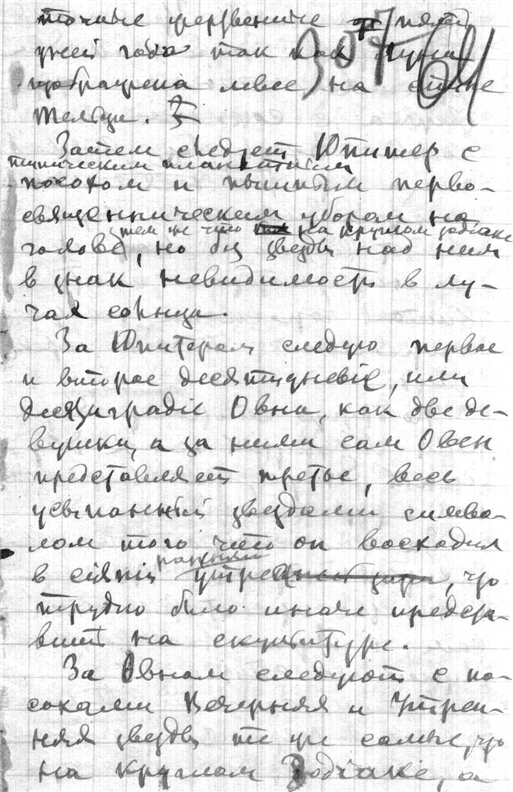 точнее
года так как Луна 307 61
изображена левее на
Затем следует Юпитер с
посохом и пышным перво-
священническим убором на
тем же что на круглом зодиаке
голове, но без звезды над ним
в знак невидимости в лу-
чах солнца.
За Юпитером следую первое
и второе десятидневіе, или
десятиградіе Овна, как две де-
вушки, а за ними сам Овен
представляет третье, весь
усыпанный звездами симво-
лом того что он восходил
ранним
в сіяніи утре зари, что
трудно было иначе предста-
вить на скульптуре.
За Овном следуют с по-
сохами Вечерняя и Утрен-
няя звезды те же самые, что
на круглом Зодіаке, а